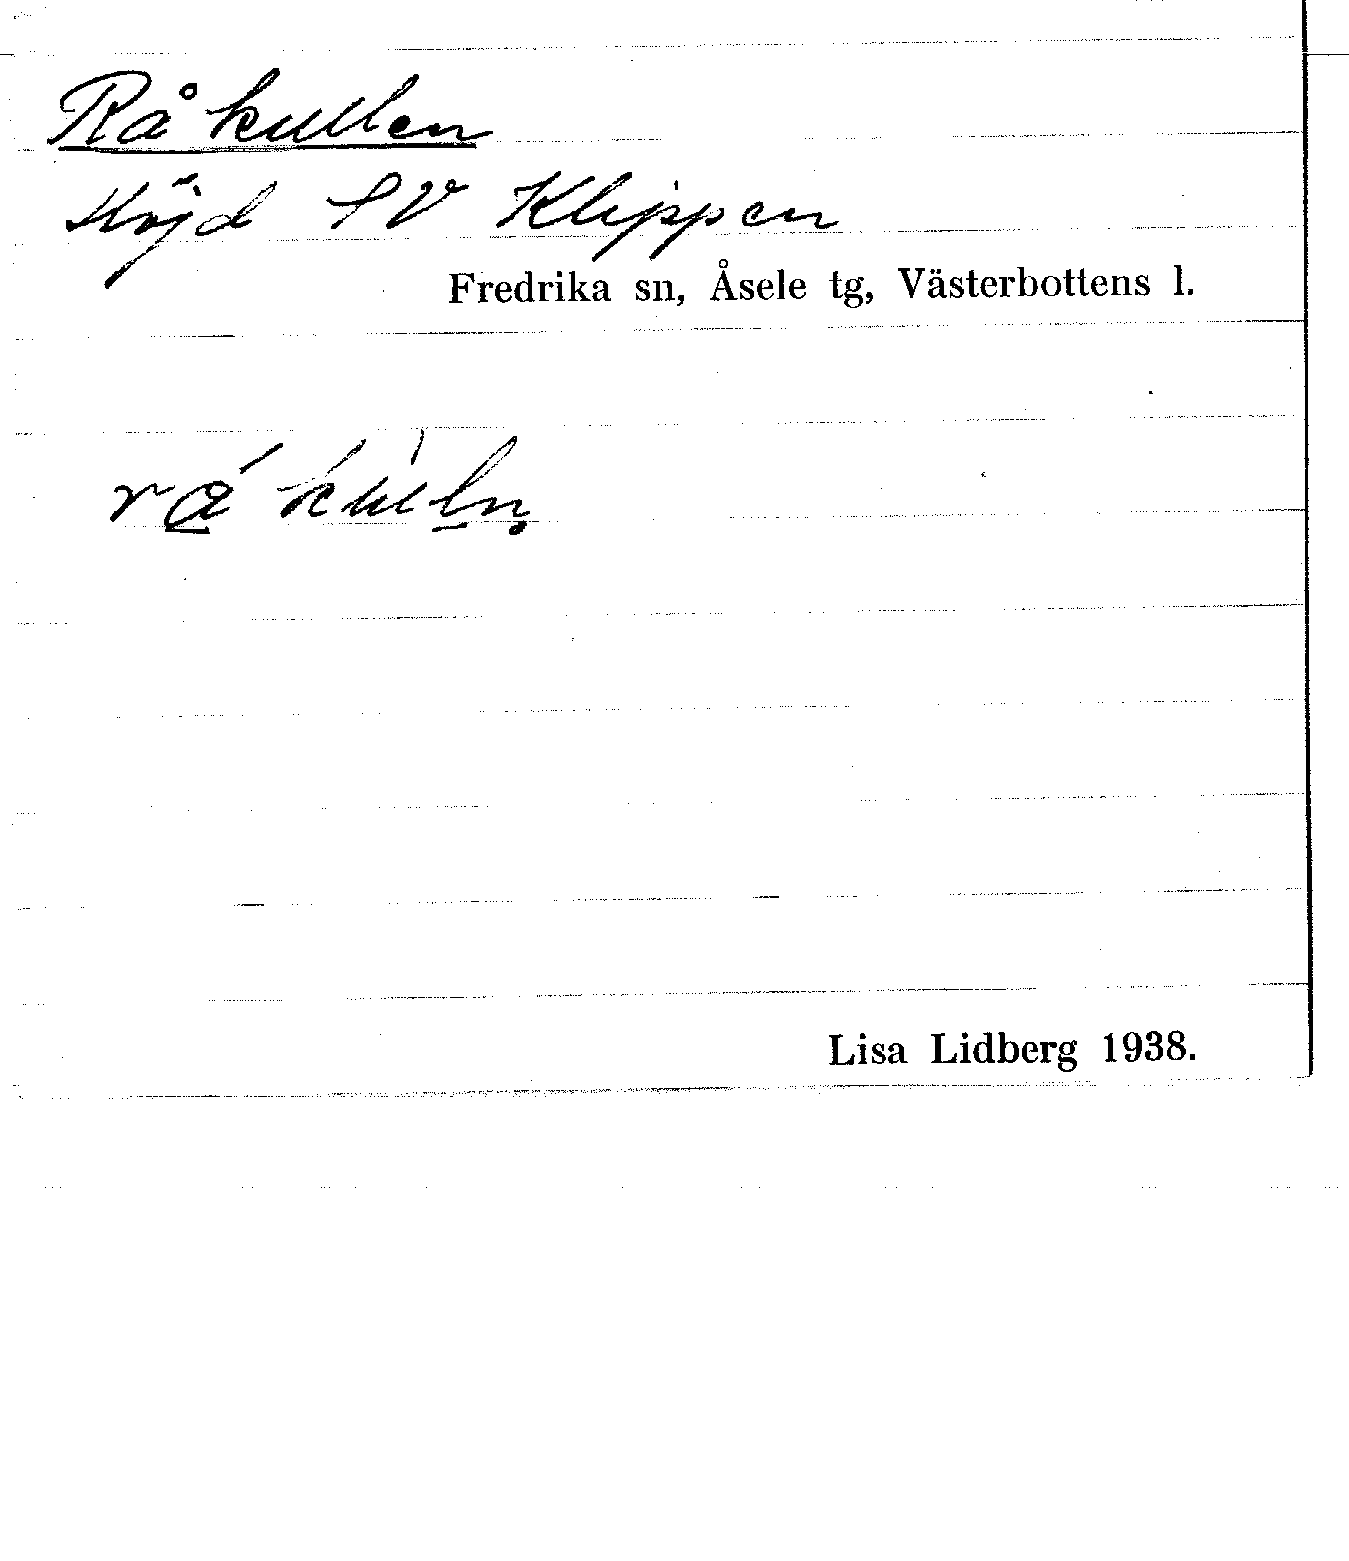 Råkullen
Höjd SV Klippen
Fredrika sn, Åsele tg, Västerbottens l.
Lisa Lidberg 1938.